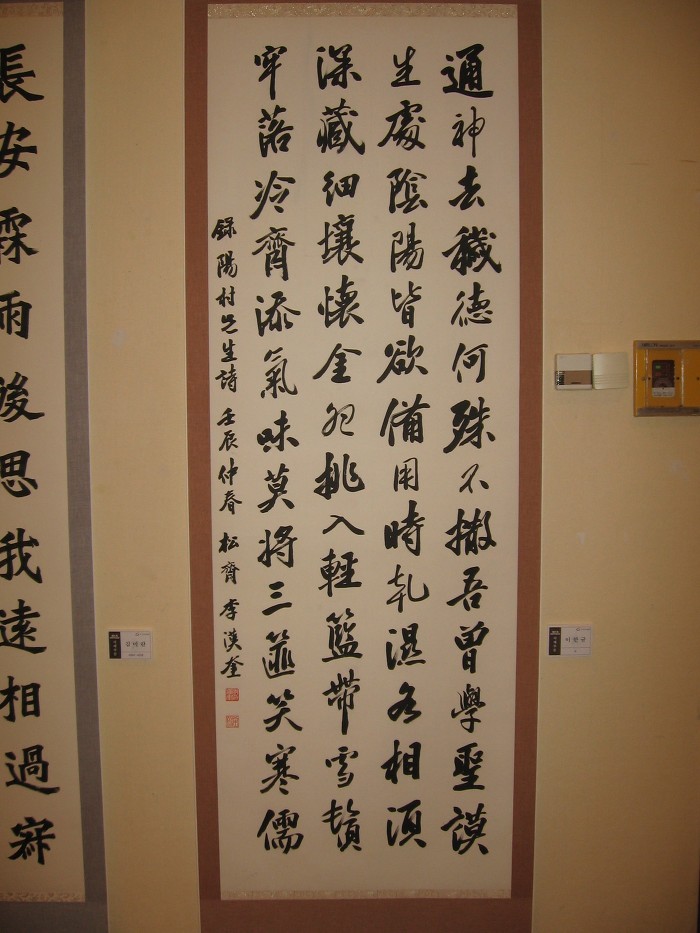 通神去穢德何殊不撤吾曾學聖謨
生處陰陽皆欲備用時乹濕各相須
深藏細壤懷金挑入輕籃帶雪鬚
牢落冷齊添氣味莫將三笑寒儒
錄陽村先生詩 壬辰仲春 松齊 李漢奎
長安霖雨後思我遠相過寂
이한규